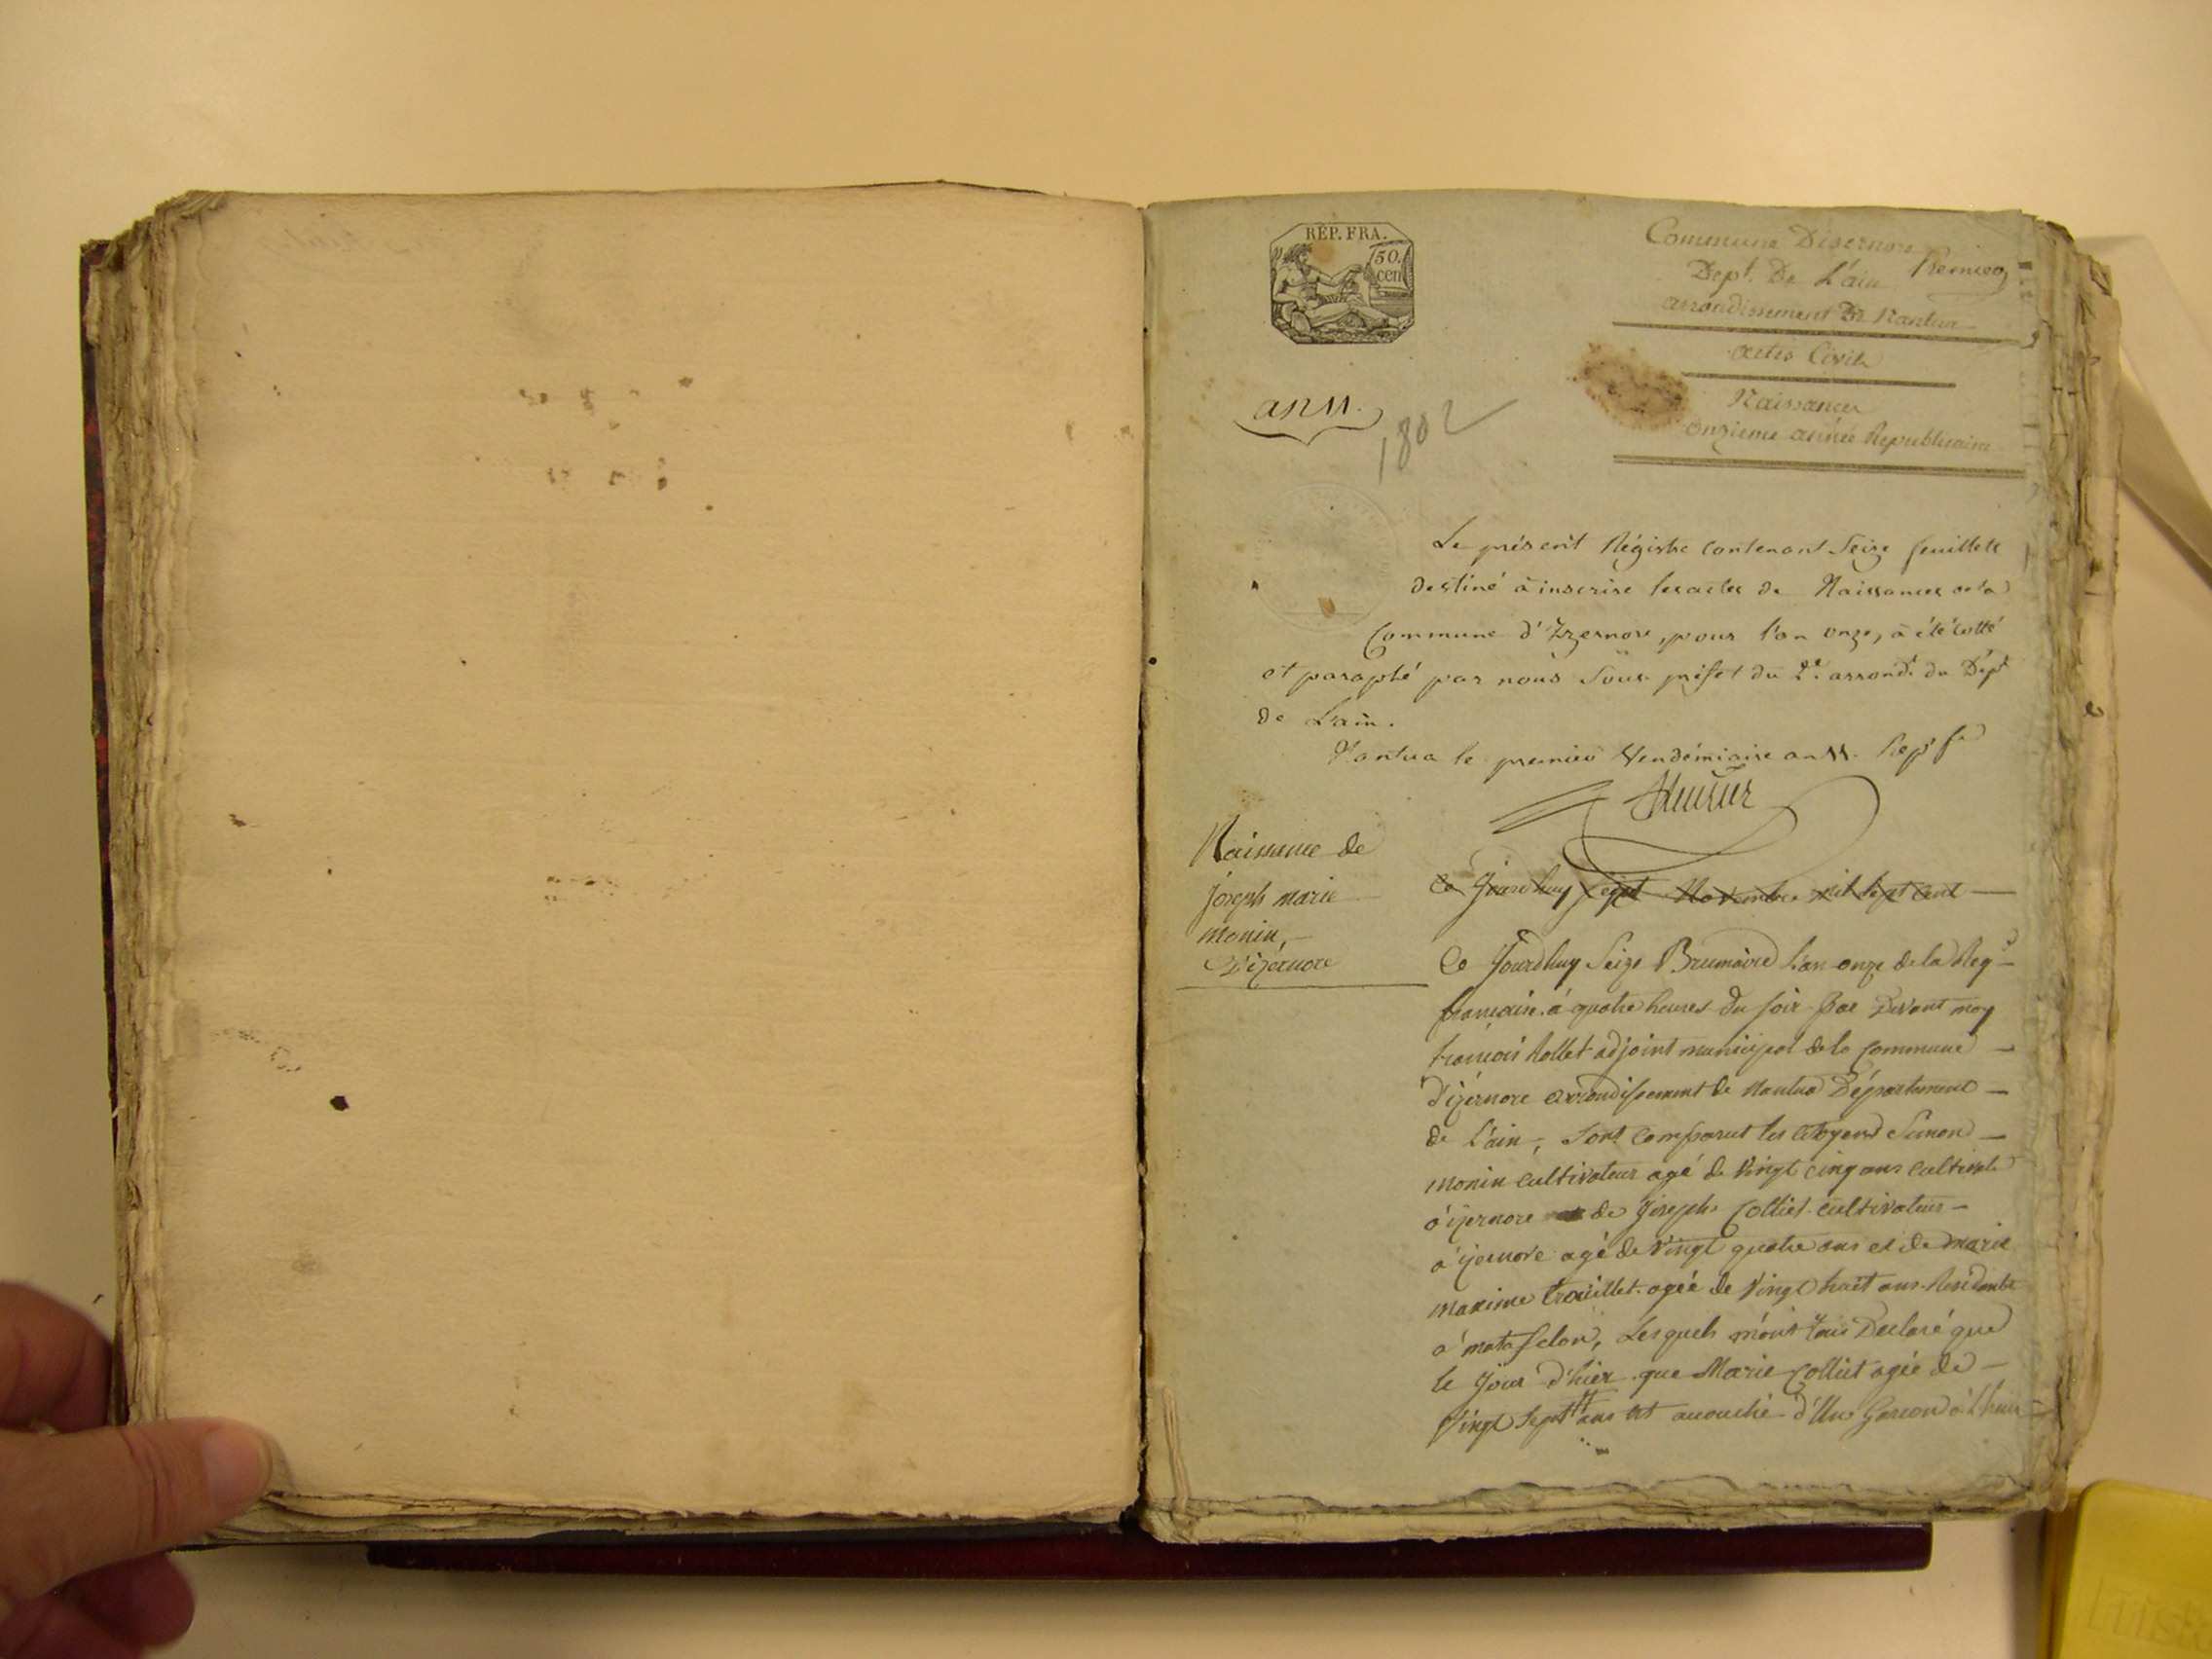 RÉP. FRA.
50.
cen
Commune Disernore
Dept. De L'ain
Premier
arrondissement De Nantua
actes Civils
Naissances
onzieme année Republicaine
an 11.
1802
Le présent Régistre contenant Seize feuillets
destiné à inscrire les actes de Naissances de la
Commune d'Izernore, pour l'an onze, à été cotté
et paraphé par nous Sous-préfet du 2e. arrondt. du Dépt
de L'ain.
Nantua le premier Vendémiaire an 11. Rep. fse
Naissance de
joseph marie
monin,
D'izernore
Ce Jourdhuy Sept Novembre mil sept cent
Ce Jourdhuy Seize Brumaire L'an onze de la Rep
francaise à quatre heures du soir Par Devant moy
francois Rollet adjoint municipal de la commune
d'izernore arrondissement de Nantua Département
de L'ain, Sont comparut les citoyens Simon
monin cultivateur agé de Vingt cinq ans
à izernore de joseph Colliet cultivateur
à izernore agé de Vingt quatre ans et de marie
maxime agée de Vingt huit ans Residante
à matafelon, Lesquels m'ont tous Declaré que
le Jour d'hier que Marie Colliet agée de
Vingt Sept ans est accouché d'Un Garcon à